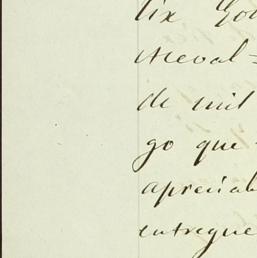 lix Go
Meval=
de mil
go que
apreciab
entregue